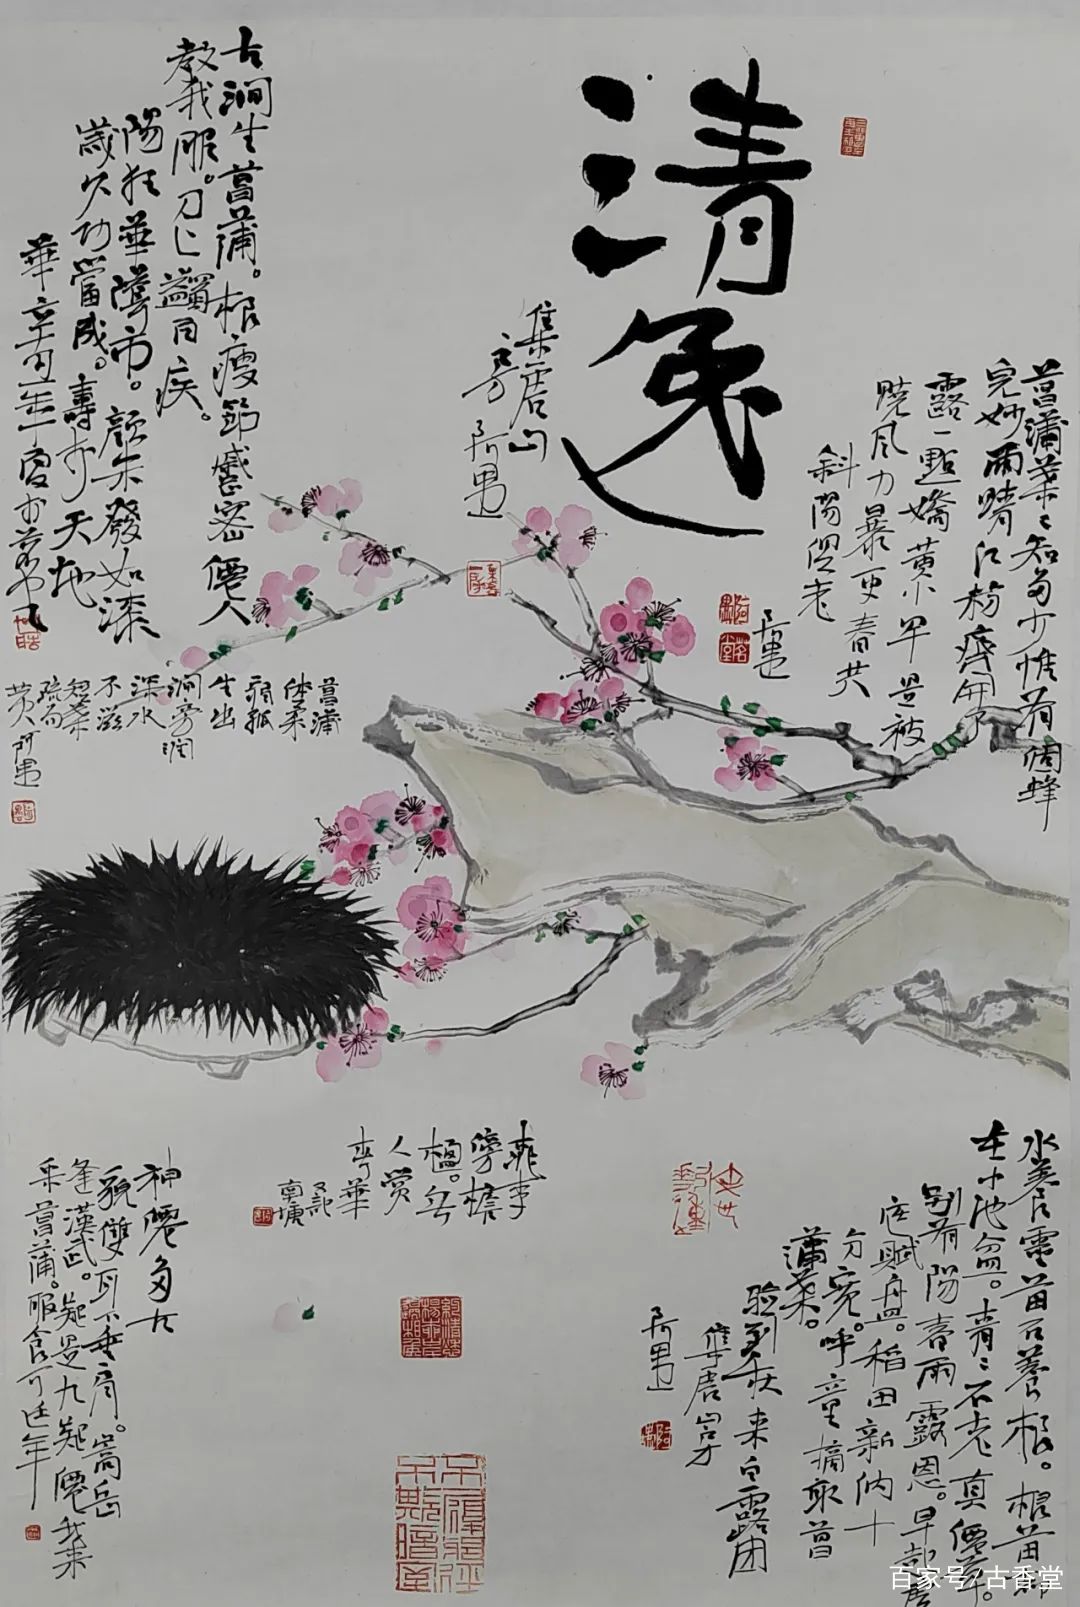 清逸
集雲山
房阿男
菖蒲葉葉知多少惟有個蜂
兒妙雨晴紅粉齊開了
露一點嬌黃小早是被
曉風力暴更春共
斜陽俱老
阿男
古澗生菖蒲。根瘦節蹙密僊人
教我服。刀匕蠲百疾。
陽狂華陰市。顏朱發如漆
歲久功當成。壽與天地
菖蒲
体柔
弱孤
生出
澗旁潤
深水
不滋
短葉
疏而
黃阿男
桃李
傍檐
楹。無
人賞
華
又記
南塘
神僊多古
貌雙耳下垂肩。嵩岳
逢漢武。疑是九疑僊我來
采菖蒲。服食可延年
水養靈苗石養根。根苗都
在小池盆。青青不老真僊草。
別有陽春雨露恩。早起
底賦盤。稻田新納十
分寬。呼童摘取菖
蒲葉。
驗到秋來白露團
集雲山房
阿男
百家号/古香堂